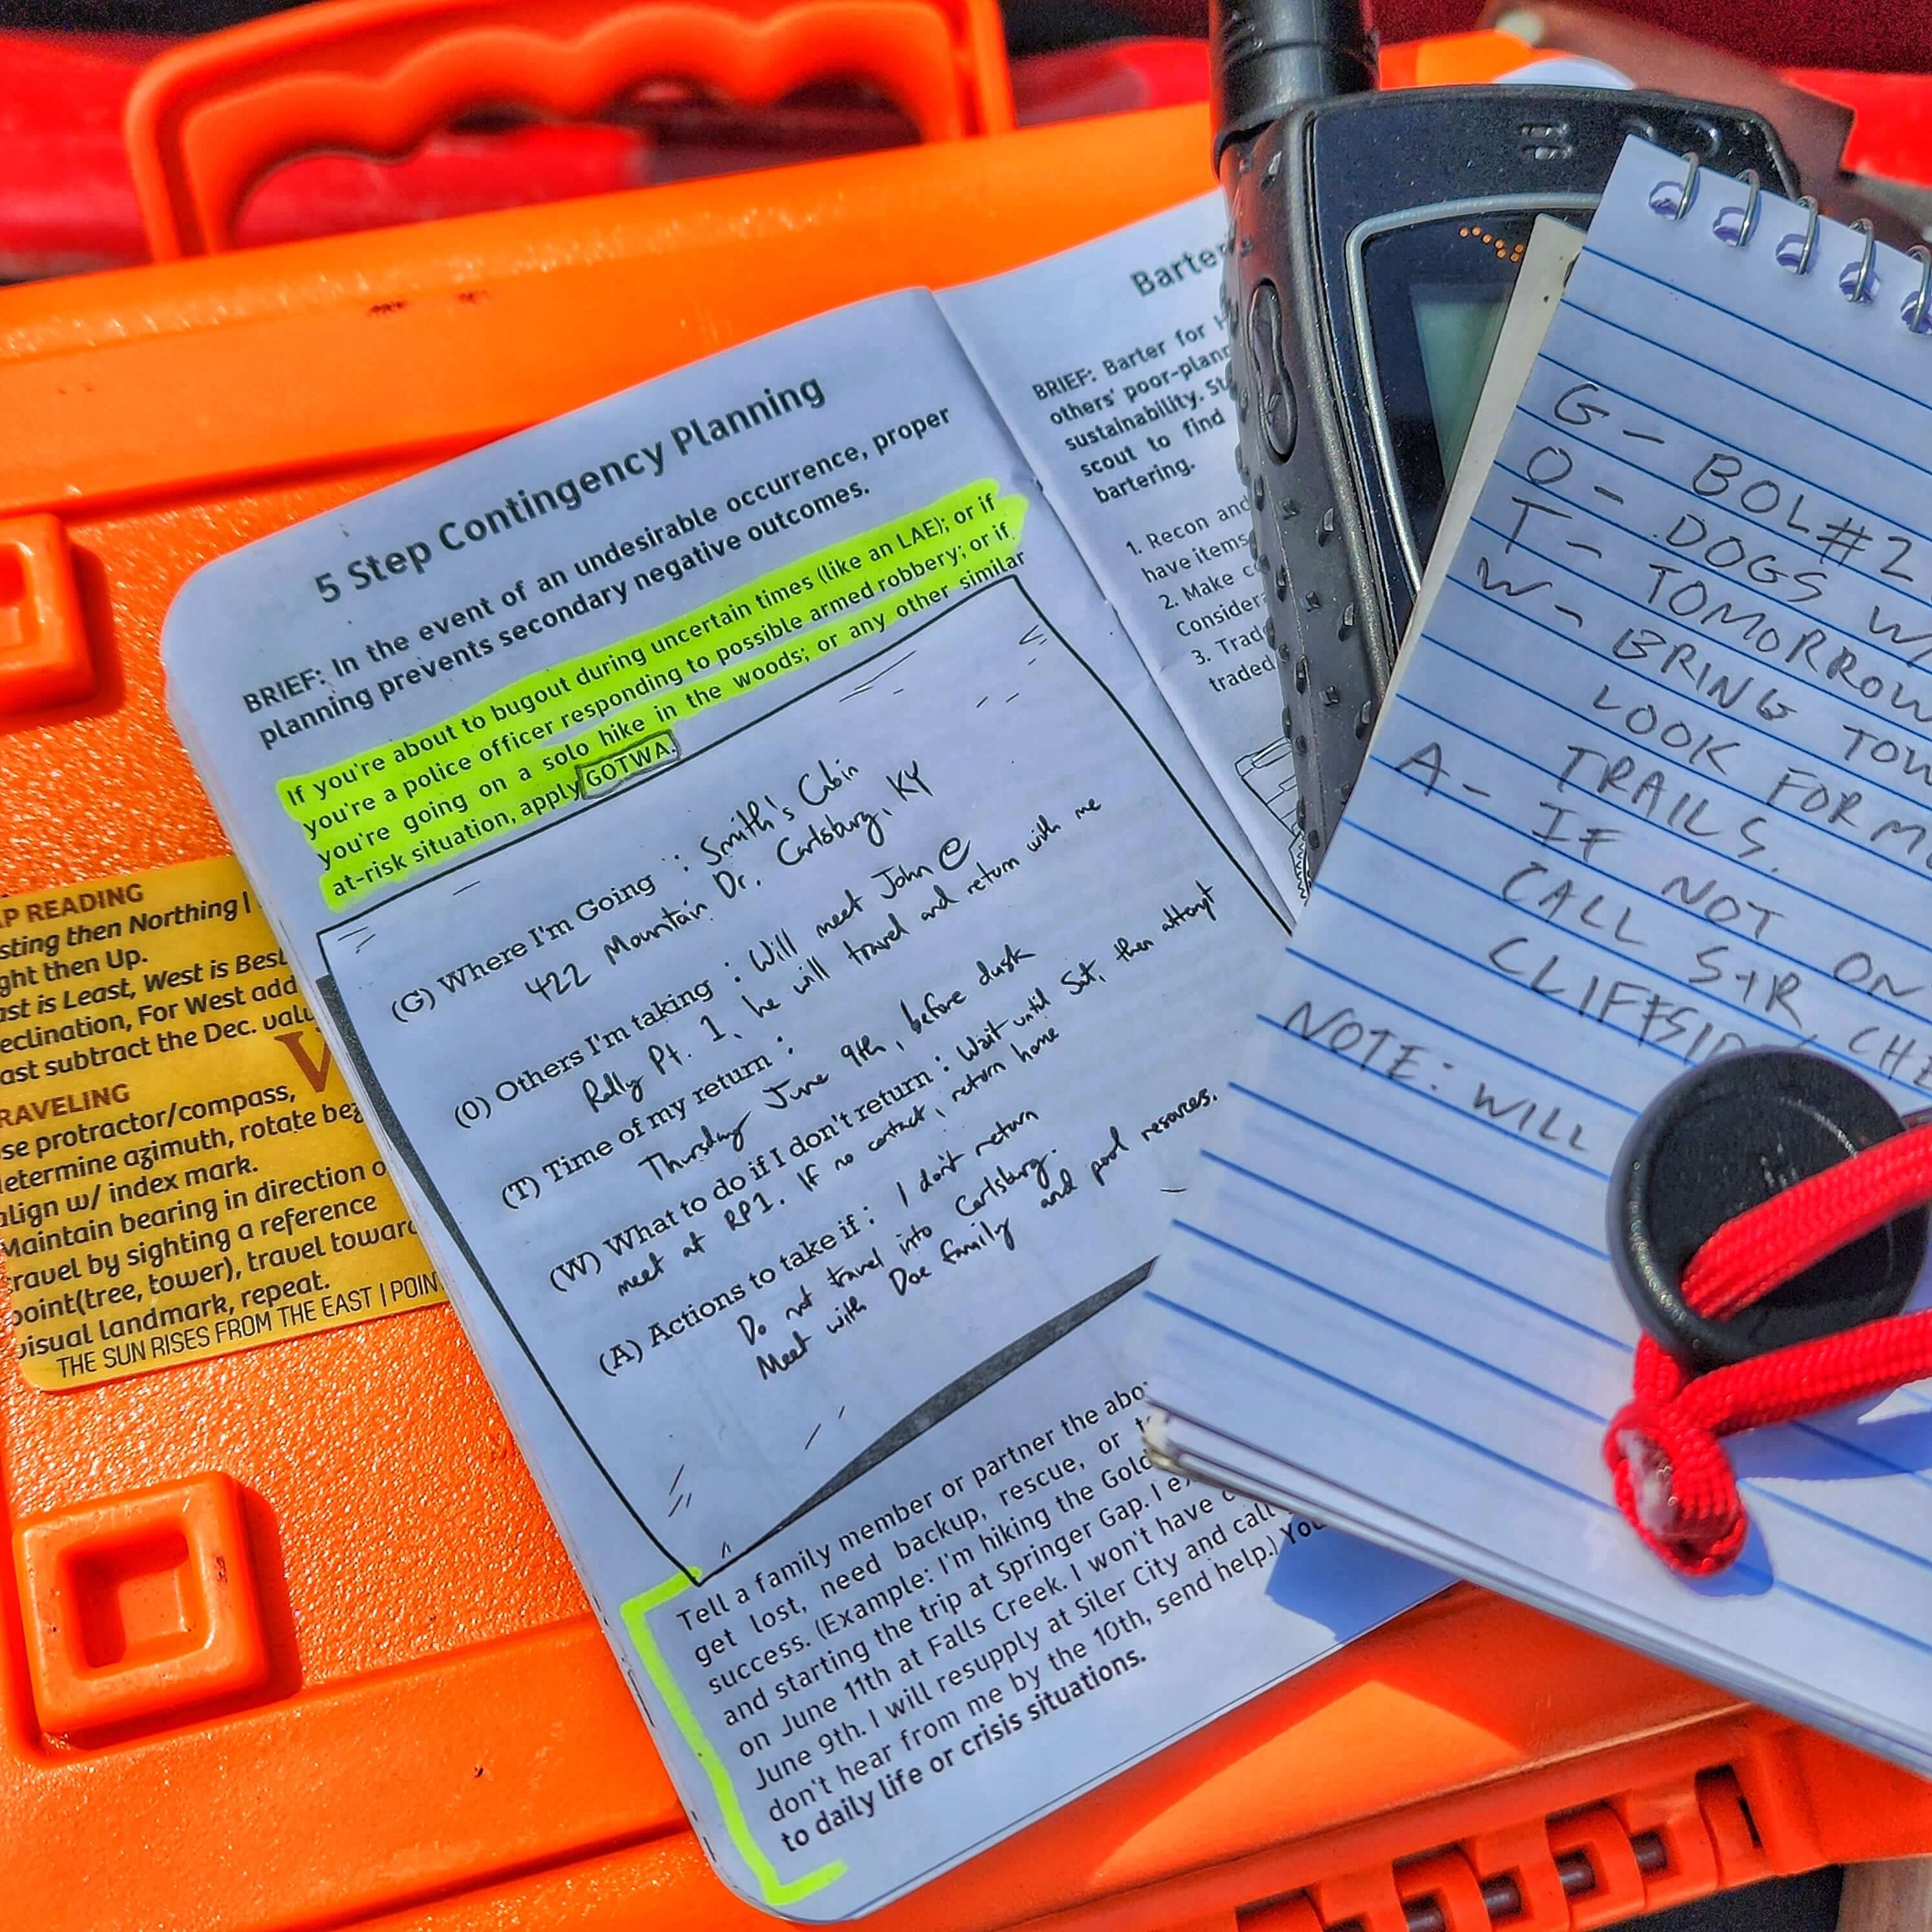 5 Step Contingency Planning
BRIEF: In the event of an undesirable occurrence, proper
planning prevents secondary negative outcomes.
If you're about to bugout during uncertain times (like an LAE); or if
you're a police officer responding to possible armed robbery; or if
you're going on a solo hike in the woods; or any other similar
at-risk situation, apply GOTWA.
(G) Where I'm Going : Smith's Cabin
422 Mountain Dr. Carlsburg, KY
(O) Others I'm taking : Will meet John @
Rally Pt. 1, he will travel and return with me
(T) Time of my return :
Thursday June 9th, before dusk
(W) What to do if I don't return : Wait until Sat, then attempt
meet at RP1. If no contact, return home
(A) Actions to take if : I don't return
Do not travel into Carlsburg.
Meet with Doe family and pool resources.
Tell a family member or partner the
get lost, need backup, rescue, or
success. (Example: I'm hiking the
and starting the trip at Springer Gap. I
on June 11th at Falls Creek. I won't have
June 9th. I will resupply at Siler City and call
don't hear from me by the 10th, send help.)
to daily life or crisis situations.
BRIEF: Barter for
others'
sustainability.
scout to find
bartering.
1. Recon and
have items
2. Make
3.
traded
G - BOL#2
O - DOGS
T - TOMORROW
W - BRING
LOOK FOR
TRAILS.
A - IF NOT ON
CALL S+R,
NOTE: WILL
READING
then Northing |
then Up.
is Least, West is Best
For West add
subtract the Dec.
protractor/compass,
azimuth, rotate
w/ index mark.
bearing in direction
by sighting a reference
(tree, tower), travel
landmark, repeat.
THE SUN RISES FROM THE EAST |